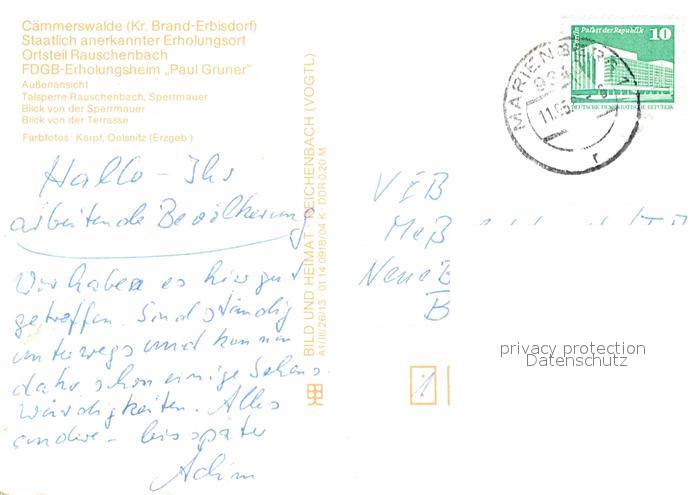 Cämmerswalde (Kr. Brand-Erbisdorf)
Staatlich anerkannter Erholungsort
Ortsteil Rauschenbach
FDGB-Erholungsheim „Paul Gruner"
Außenansicht
Talsperre Rauschenbach, Sperrmauer
Blick von der Sperrmauer
Blick von der Terrasse
Farbfotos: Karpf, Oelsnitz (Erzgeb.)
Hallo - Ihr
arbeitende Bevölkerung
Wir haben es hier gut
getroffen. Sind ständig
unterwegs und konnten
daher schon einige Sehens
würdigkeiten. Alles
andere - bis später
Achim
BILD UND HEIMAT · REICHENBACH (VOGTL)
A1/III/26/13 01 14 0918/04 K DDR 0,20 M
Palast der Republik
10
DEUTSCHE DEMOKRATISCHE REPUBLIK
MARIENBERG 1
11.
r
VEB
Meß
Neue B
B
1
privacy protection
Datenschutz